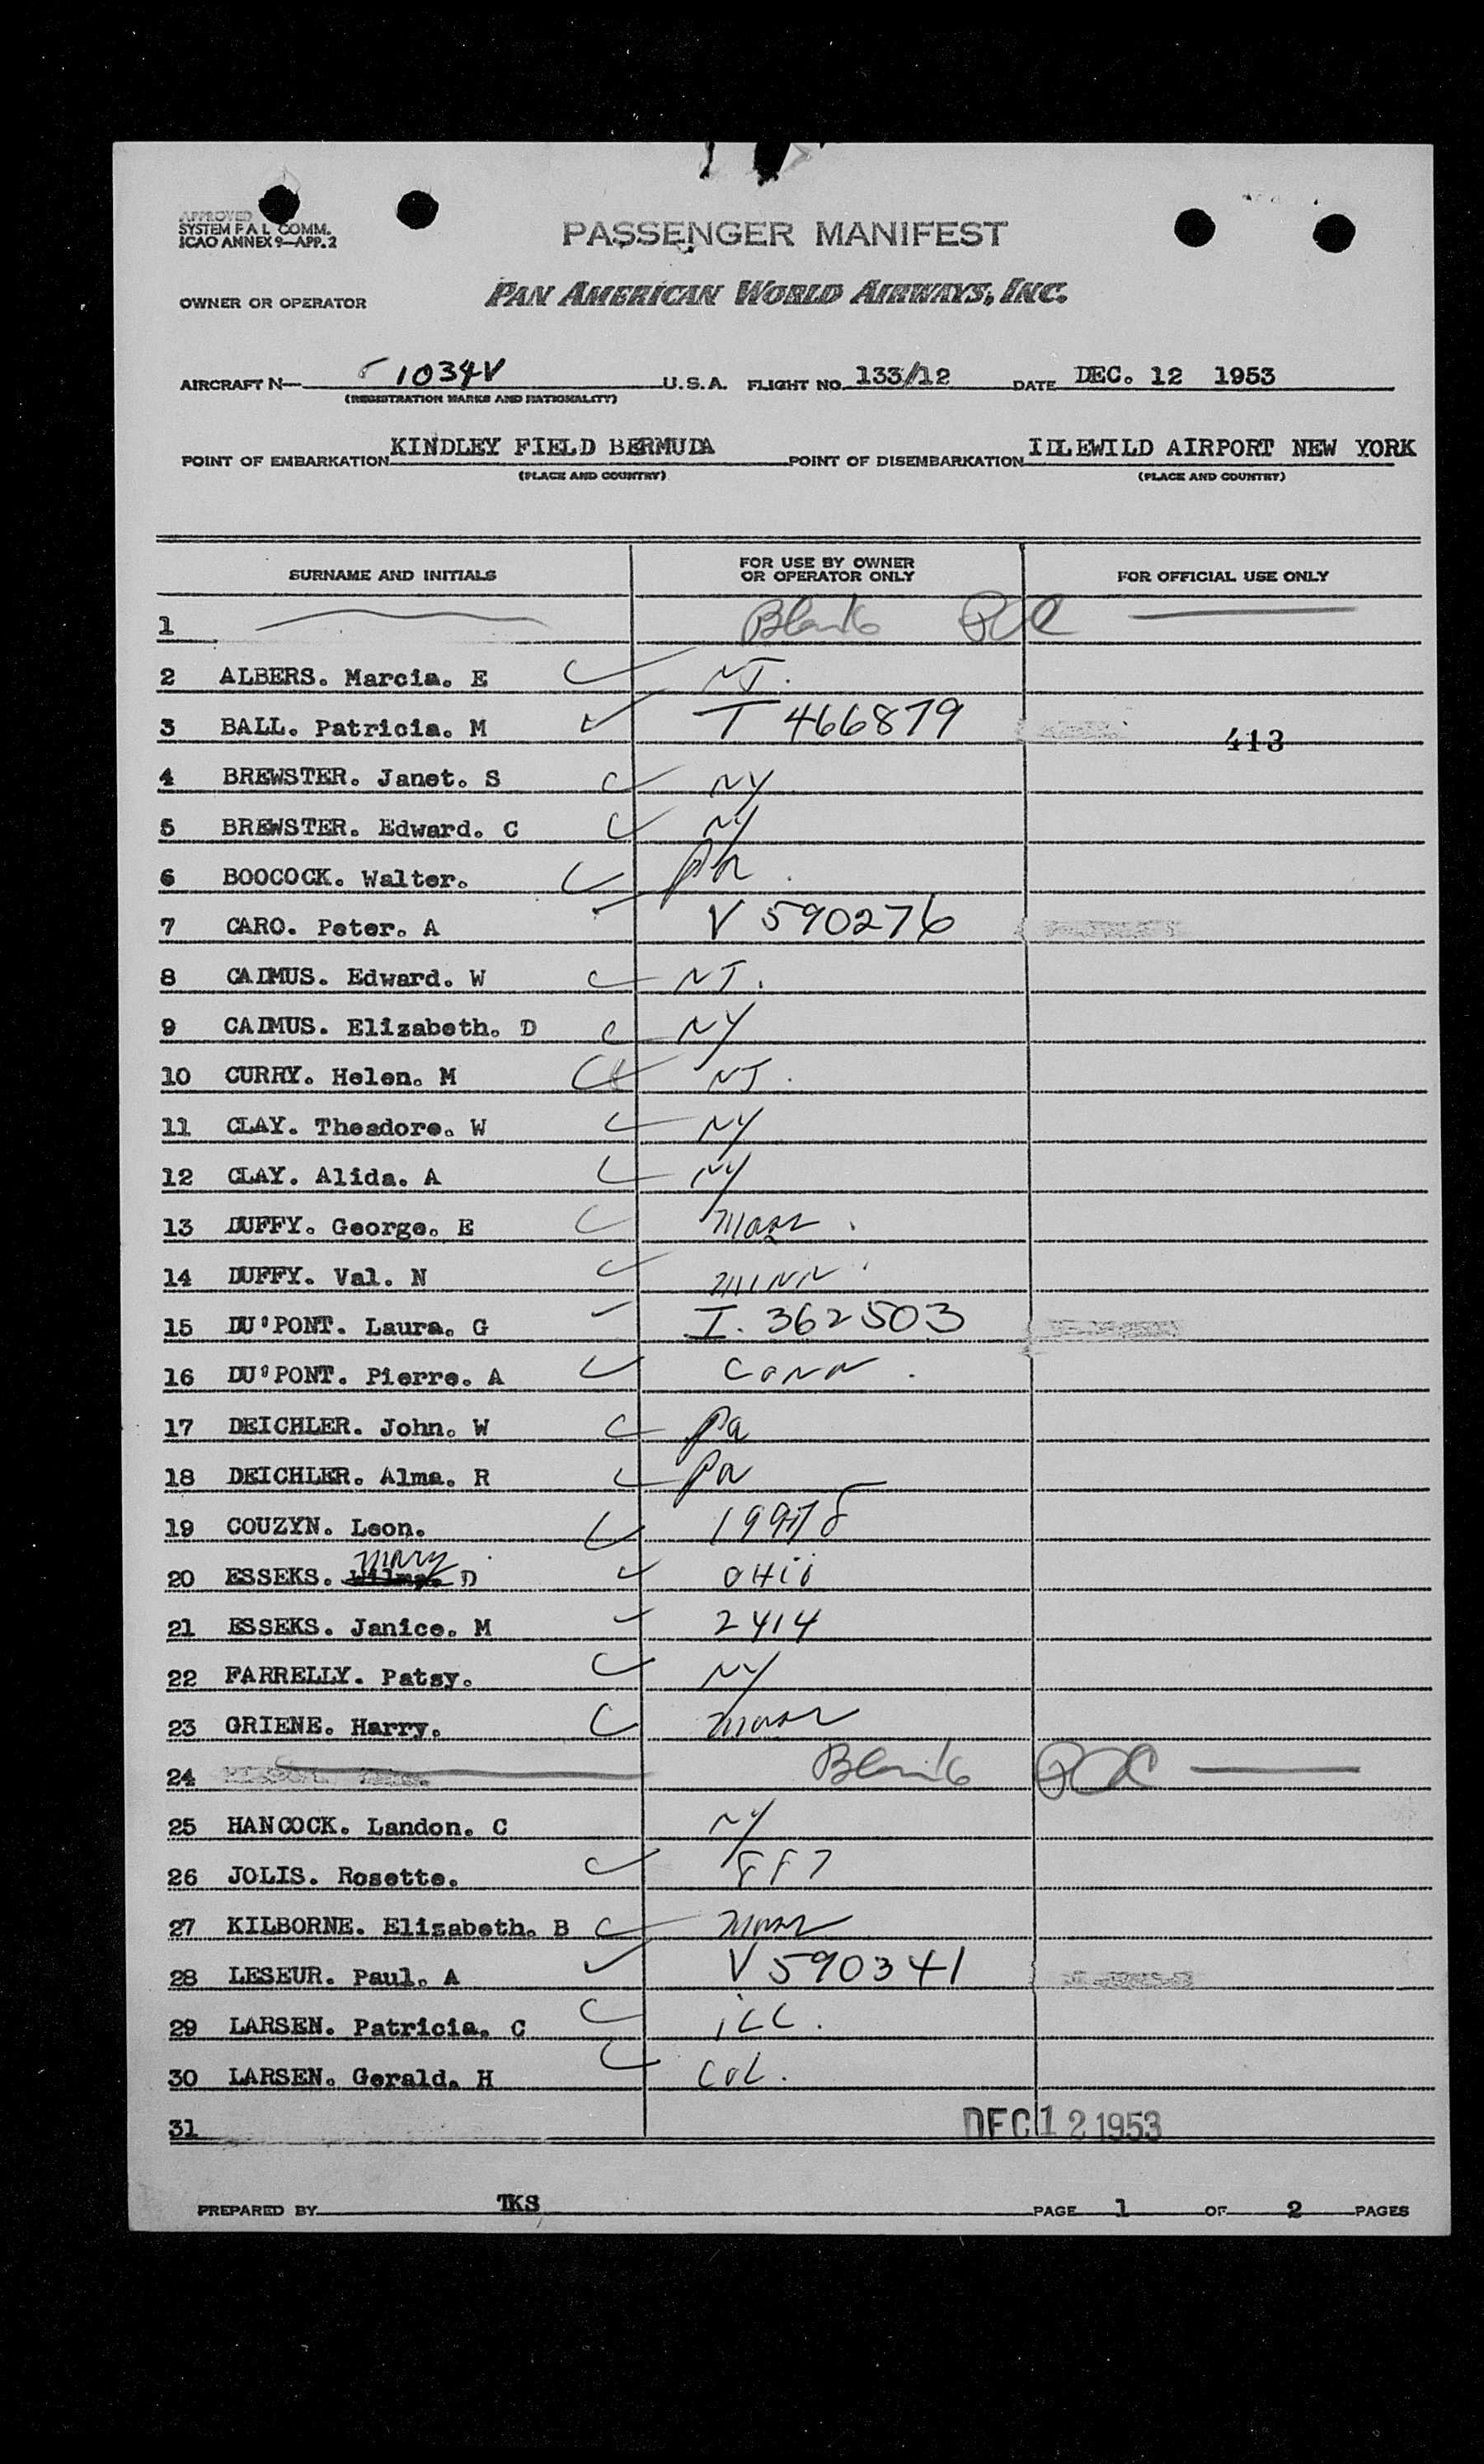 APPROVED
SYSTEM F A L COMM.
ICAO ANNEX 9—APP. 2
PASSENGER MANIFEST
OWNER OR OPERATOR
PAN AMERICAN WORLD AIRWAYS, INC.
AIRCRAFT N— 1034V U.S.A. FLIGHT NO. 133/12 DATE DEC. 12 1953
(REGISTRATION MARKS AND NATIONALITY)
POINT OF EMBARKATION KINDLEY FIELD BERMUDA POINT OF DISEMBARKATION IDLEWILD AIRPORT NEW YORK
(PLACE AND COUNTRY) (PLACE AND COUNTRY)
SURNAME AND INITIALS FOR USE BY OWNER OR OPERATOR ONLY FOR OFFICIAL USE ONLY
1 Blank
2 ALBERS. Marcia. E NJ.
3 BALL. Patricia. M T 466879 413
4 BREWSTER. Janet. S NY
5 BREWSTER. Edward. C NY
6 BOOCOCK. Walter. Pa.
7 CARO. Peter. A V 590276
8 CADMUS. Edward. W NJ.
9 CADMUS. Elizabeth. D NY
10 CURRY. Helen. M NJ.
11 CLAY. Theadore. W NY
12 CLAY. Alida. A NY
13 DUFFY. George. E Mass.
14 DUFFY. Val. N Minn.
15 DU'PONT. Laura. G I. 362503
16 DU'PONT. Pierre. A Conn.
17 DEICHLER. John. W Pa
18 DEICHLER. Alma. R Pa
19 COUZYN. Leon.
20 ESSEKS. Mary D OHio
21 ESSEKS. Janice. M 2414
22 FARRELLY. Patsy. NY
23 GRIENE. Harry. Mass
24 Blank
25 HANCOCK. Landon. C NY
26 JOLIS. Rosette.
27 KILBORNE. Elizabeth. B Mass
28 LESEUR. Paul. A V 590341
29 LARSEN. Patricia. C iLL.
30 LARSEN. Gerald. H CoL.
31 DEC 12 1953
PREPARED BY TKS PAGE 1 OF 2 PAGES